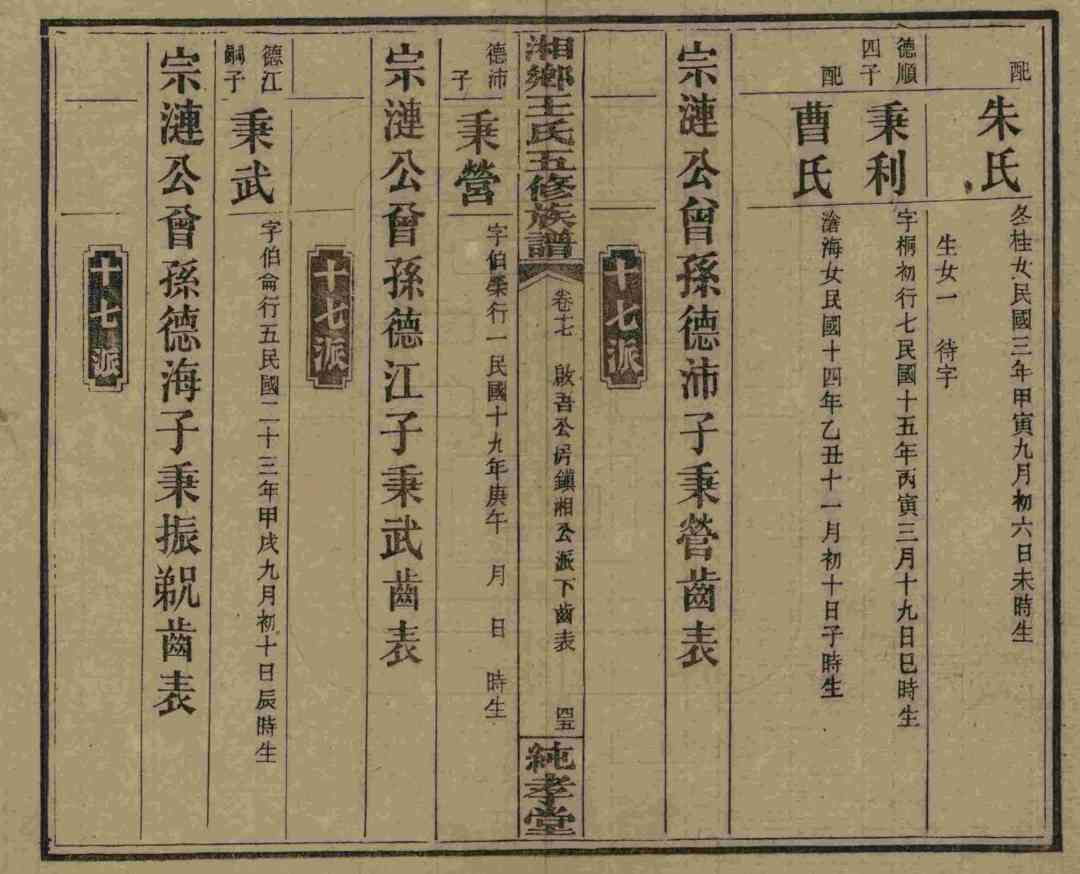 配
朱氏
冬桂女民國三年甲寅九月初六日未時生
生女一 待字
德順
四子
秉利
字桐初行七民國十五年丙寅三月十九日巳時生
配
曹氏
滄海女民國十四年乙丑十一月初十日子時生
宗漣公曾孫德沛子秉營齒表
十七派
湘鄉王氏五修族譜
卷十七 啟吾公房鎮湘公派下齒表 四五
純孝堂
德沛
子
秉營
字伯榮行一民國十九年庚午 月 日 時生
宗漣公曾孫德江子秉武齒表
十七派
德江
嗣子
秉武
字伯侖行五民國二十三年甲戌九月初十日辰時生
宗漣公曾孫德海子秉振齒表
十七派